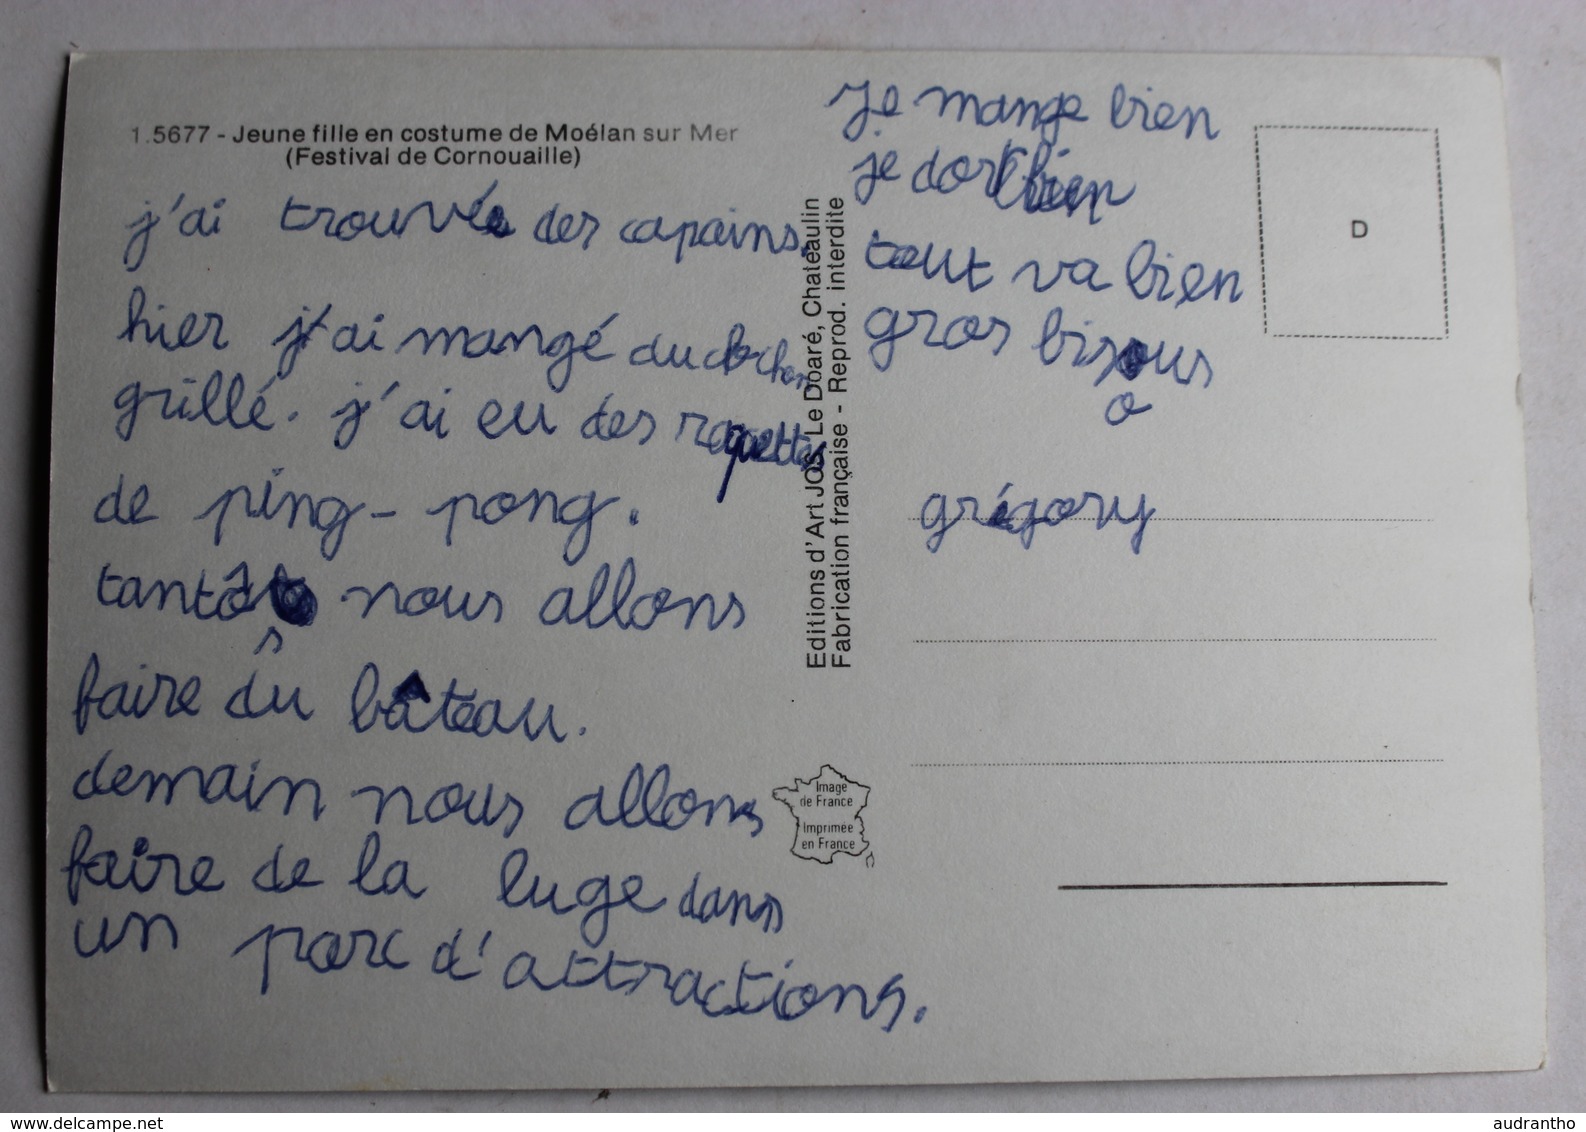 1.5677 - Jeune fille en costume de Moélan sur Mer
(Festival de Cornouaille)
j'ai trouvé des capains.
hier j'ai mangé du cochon
grillé. j'ai eu des raquettes
de ping-pong.
tantôt nous allons
faire du bâteau.
demain nous allons
faire de la luge dans
un parc d'attractions.
Editions d'Art JOS Le Doaré, Chateaulin
Fabrication française - Reprod. interdite
Je mange bien
je dort bien
tout va bien
gros bisous
o
grégory
D
Image
de France
Imprimée
en France
www.delcampe.net
audrantho